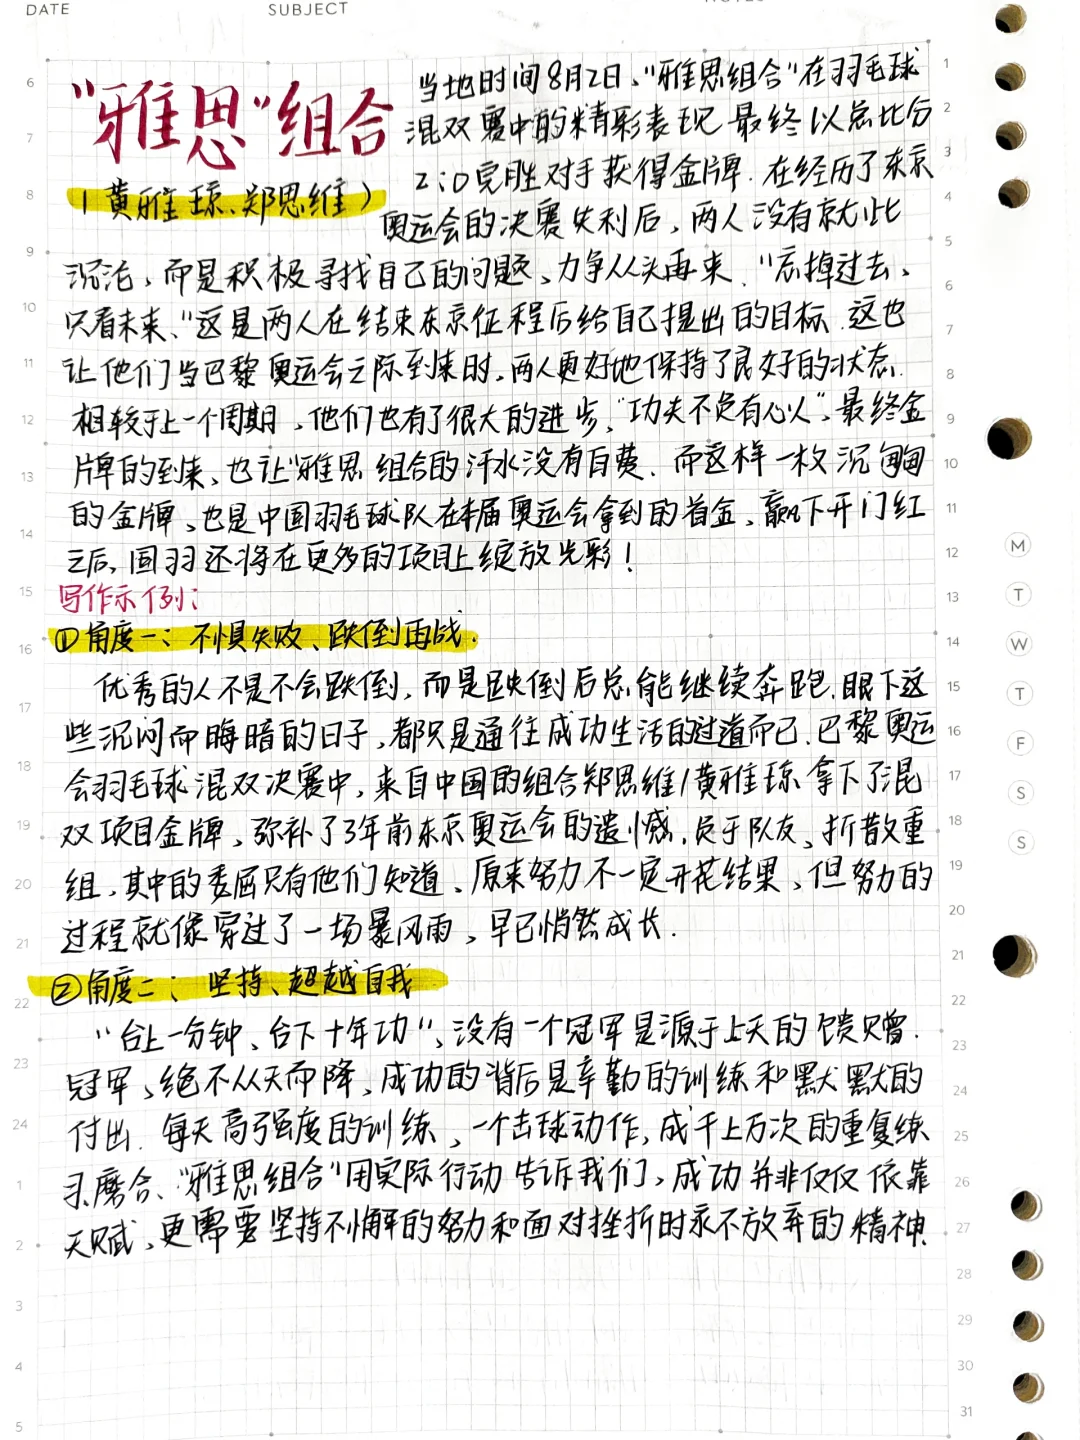 DATE
SUBJECT
"雅思"组合
(黄雅琼、郑思维)
当地时间8月2日、"雅思组合"在羽毛球
混双赛中的精彩表现 最终以总比分
2:0完胜对手获得金牌. 在经历了东京
奥运会的决赛失利后, 两人没有就此
沉沦, 而是积极寻找自己的问题、力争从头再来. "忘掉过去,
只看未来、"这是两人在结束东京征程后给自己提出的目标. 这也
让他们当巴黎奥运会之际到来时, 两人更好地保持了良好的状态.
相较于上一个周期, 他们也有了很大的进步, "功夫不负有心人", 最终金
牌的到来, 也让"雅思 组合的汗水没有白费. 而这样一枚沉甸甸
的金牌、也是中国羽毛球队在本届奥运会拿到的首金、赢下开门红
之后, 国羽还将在更多的项目上绽放光彩!
写作示例:
①角度一: 不惧失败、跌倒再战.
优秀的人不是不会跌倒, 而是跌倒后总能继续奔跑. 眼下这
些沉闷而晦暗的日子, 都只是通往成功生活的过道而已. 巴黎奥运
会羽毛球混双决赛中, 来自中国的组合郑思维/黄雅琼 拿下了混
双项目金牌、弥补了3年前东京奥运会的遗憾. 负于队友, 拆散重
组, 其中的委屈只有他们知道、原来努力不一定开花结果、但努力的
过程就像穿过了一场暴风雨, 早已悄然成长.
②角度二: 坚持、超越自我.
"台上一分钟、台下十年功", 没有一个冠军是源于上天的馈赠.
冠军、绝不从天而降、成功的背后是辛勤的训练和默默的
付出. 每天高强度的训练、一个击球动作, 成千上万次的重复练
习磨合、"雅思组合"用实际行动告诉我们, 成功并非仅仅依靠
天赋, 更需要坚持不懈的努力和面对挫折时永不放弃的精神.
6
7
8
9
10
11
12
13
14
15
16
17
18
19
20
21
22
23
24
1
2
3
4
5
1
2
3
4
5
6
7
8
9
10
11
12
13
14
15
16
17
18
19
20
21
22
23
24
25
26
27
28
29
30
31
M
T
W
T
F
S
S